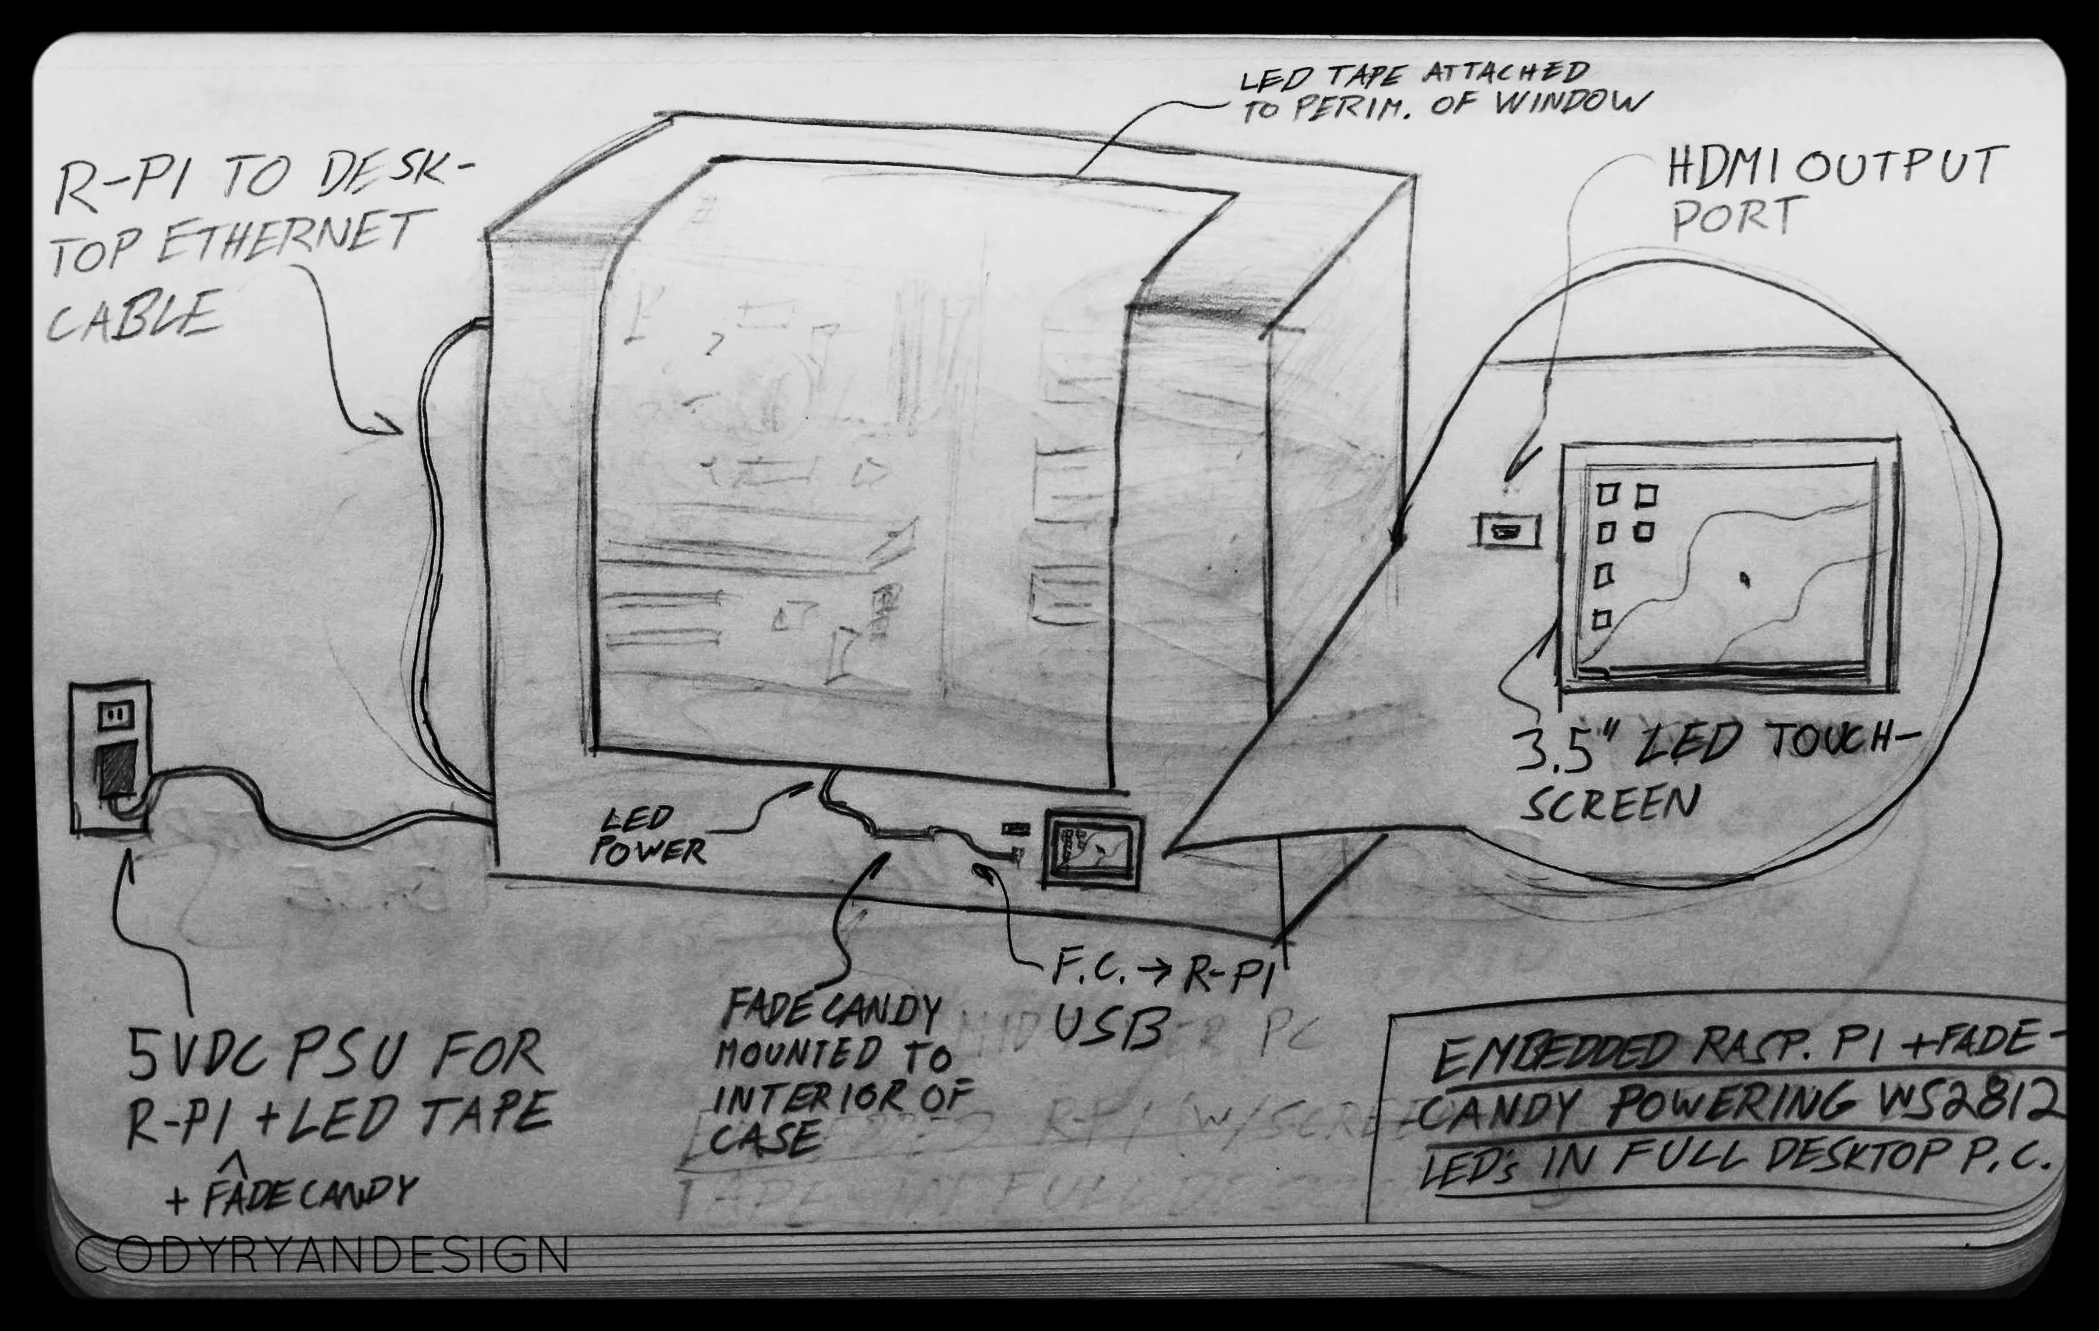 LED TAPE ATTACHED
TO PERIM. OF WINDOW
R-PI TO DESK-
TOP ETHERNET
CABLE
HDMI OUTPUT
PORT
3.5" LED TOUCH-
SCREEN
LED
POWER
F.C. → R-PI
USB
FADECANDY
MOUNTED TO
INTERIOR OF
CASE
5VDC PSU FOR
R-PI + LED TAPE
^
+ FADECANDY
EMBEDDED RASP. PI + FADE-
CANDY POWERING WS2812
LED's IN FULL DESKTOP P.C.
CODYRYANDESIGN